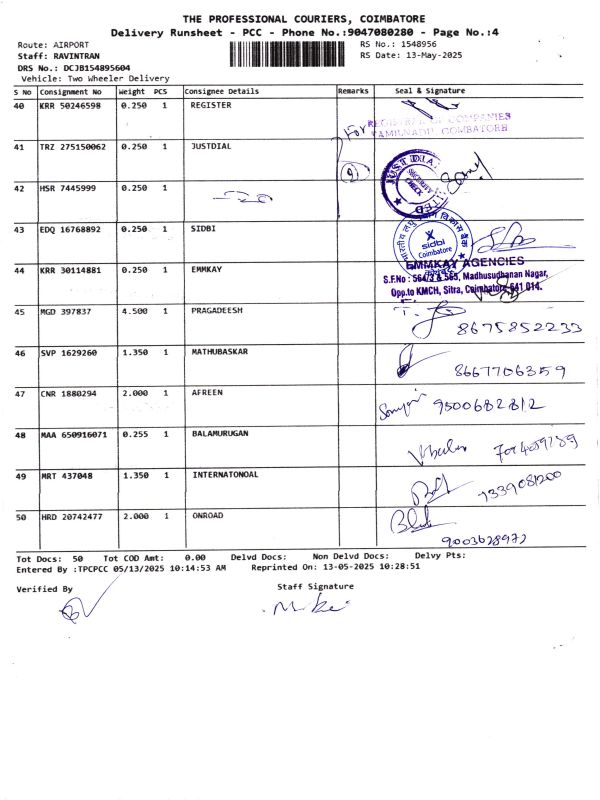 THE PROFESSIONAL COURIERS, COIMBATORE
Delivery Runsheet - PCC - Phone No.:9047080280 - Page No.:4
Route: AIRPORT RS No.: 1548956
Staff: RAVINTRAN RS Date: 13-May-2025
DRS No.: DCJB154895604
Vehicle: Two Wheeler Delivery
S No Consignment No Weight PCS Consignee Details Remarks Seal & Signature
40 KRR 50246598 0.250 1 REGISTER
For REGISTRAR OF COMPANIES
TAMILNADU, COIMBATORE
41 TRZ 275150062 0.250 1 JUSTDIAL
JUST DIAL LIMITED
SECURITY CHECK
42 HSR 7445999 0.250 1
43 EDQ 16768892 0.250 1 SIDBI
sidbi
Coimbatore
44 KRR 30114881 0.250 1 EMMKAY
EMMKAY AGENCIES
S.F.No : 564/3 & 565, Madhusudhanan Nagar,
Opp.to KMCH, Sitra, Coimbatore-641 014.
45 MGD 397837 4.500 1 PRAGADEESH
8675852233
46 SVP 1629260 1.350 1 MATHUBASKAR
8667706359
47 CNR 1880294 2.000 1 AFREEN
9500682812
48 MAA 650916071 0.255 1 BALAMURUGAN
49 MRT 437048 1.350 1 INTERNATONOAL
7339081200
50 HRD 20742477 2.000 1 ONROAD
9003628972
Tot Docs: 50 Tot COD Amt: 0.00 Delvd Docs: Non Delvd Docs: Delvy Pts:
Entered By :TPCPCC 05/13/2025 10:14:53 AM Reprinted On: 13-05-2025 10:28:51
Verified By Staff Signature